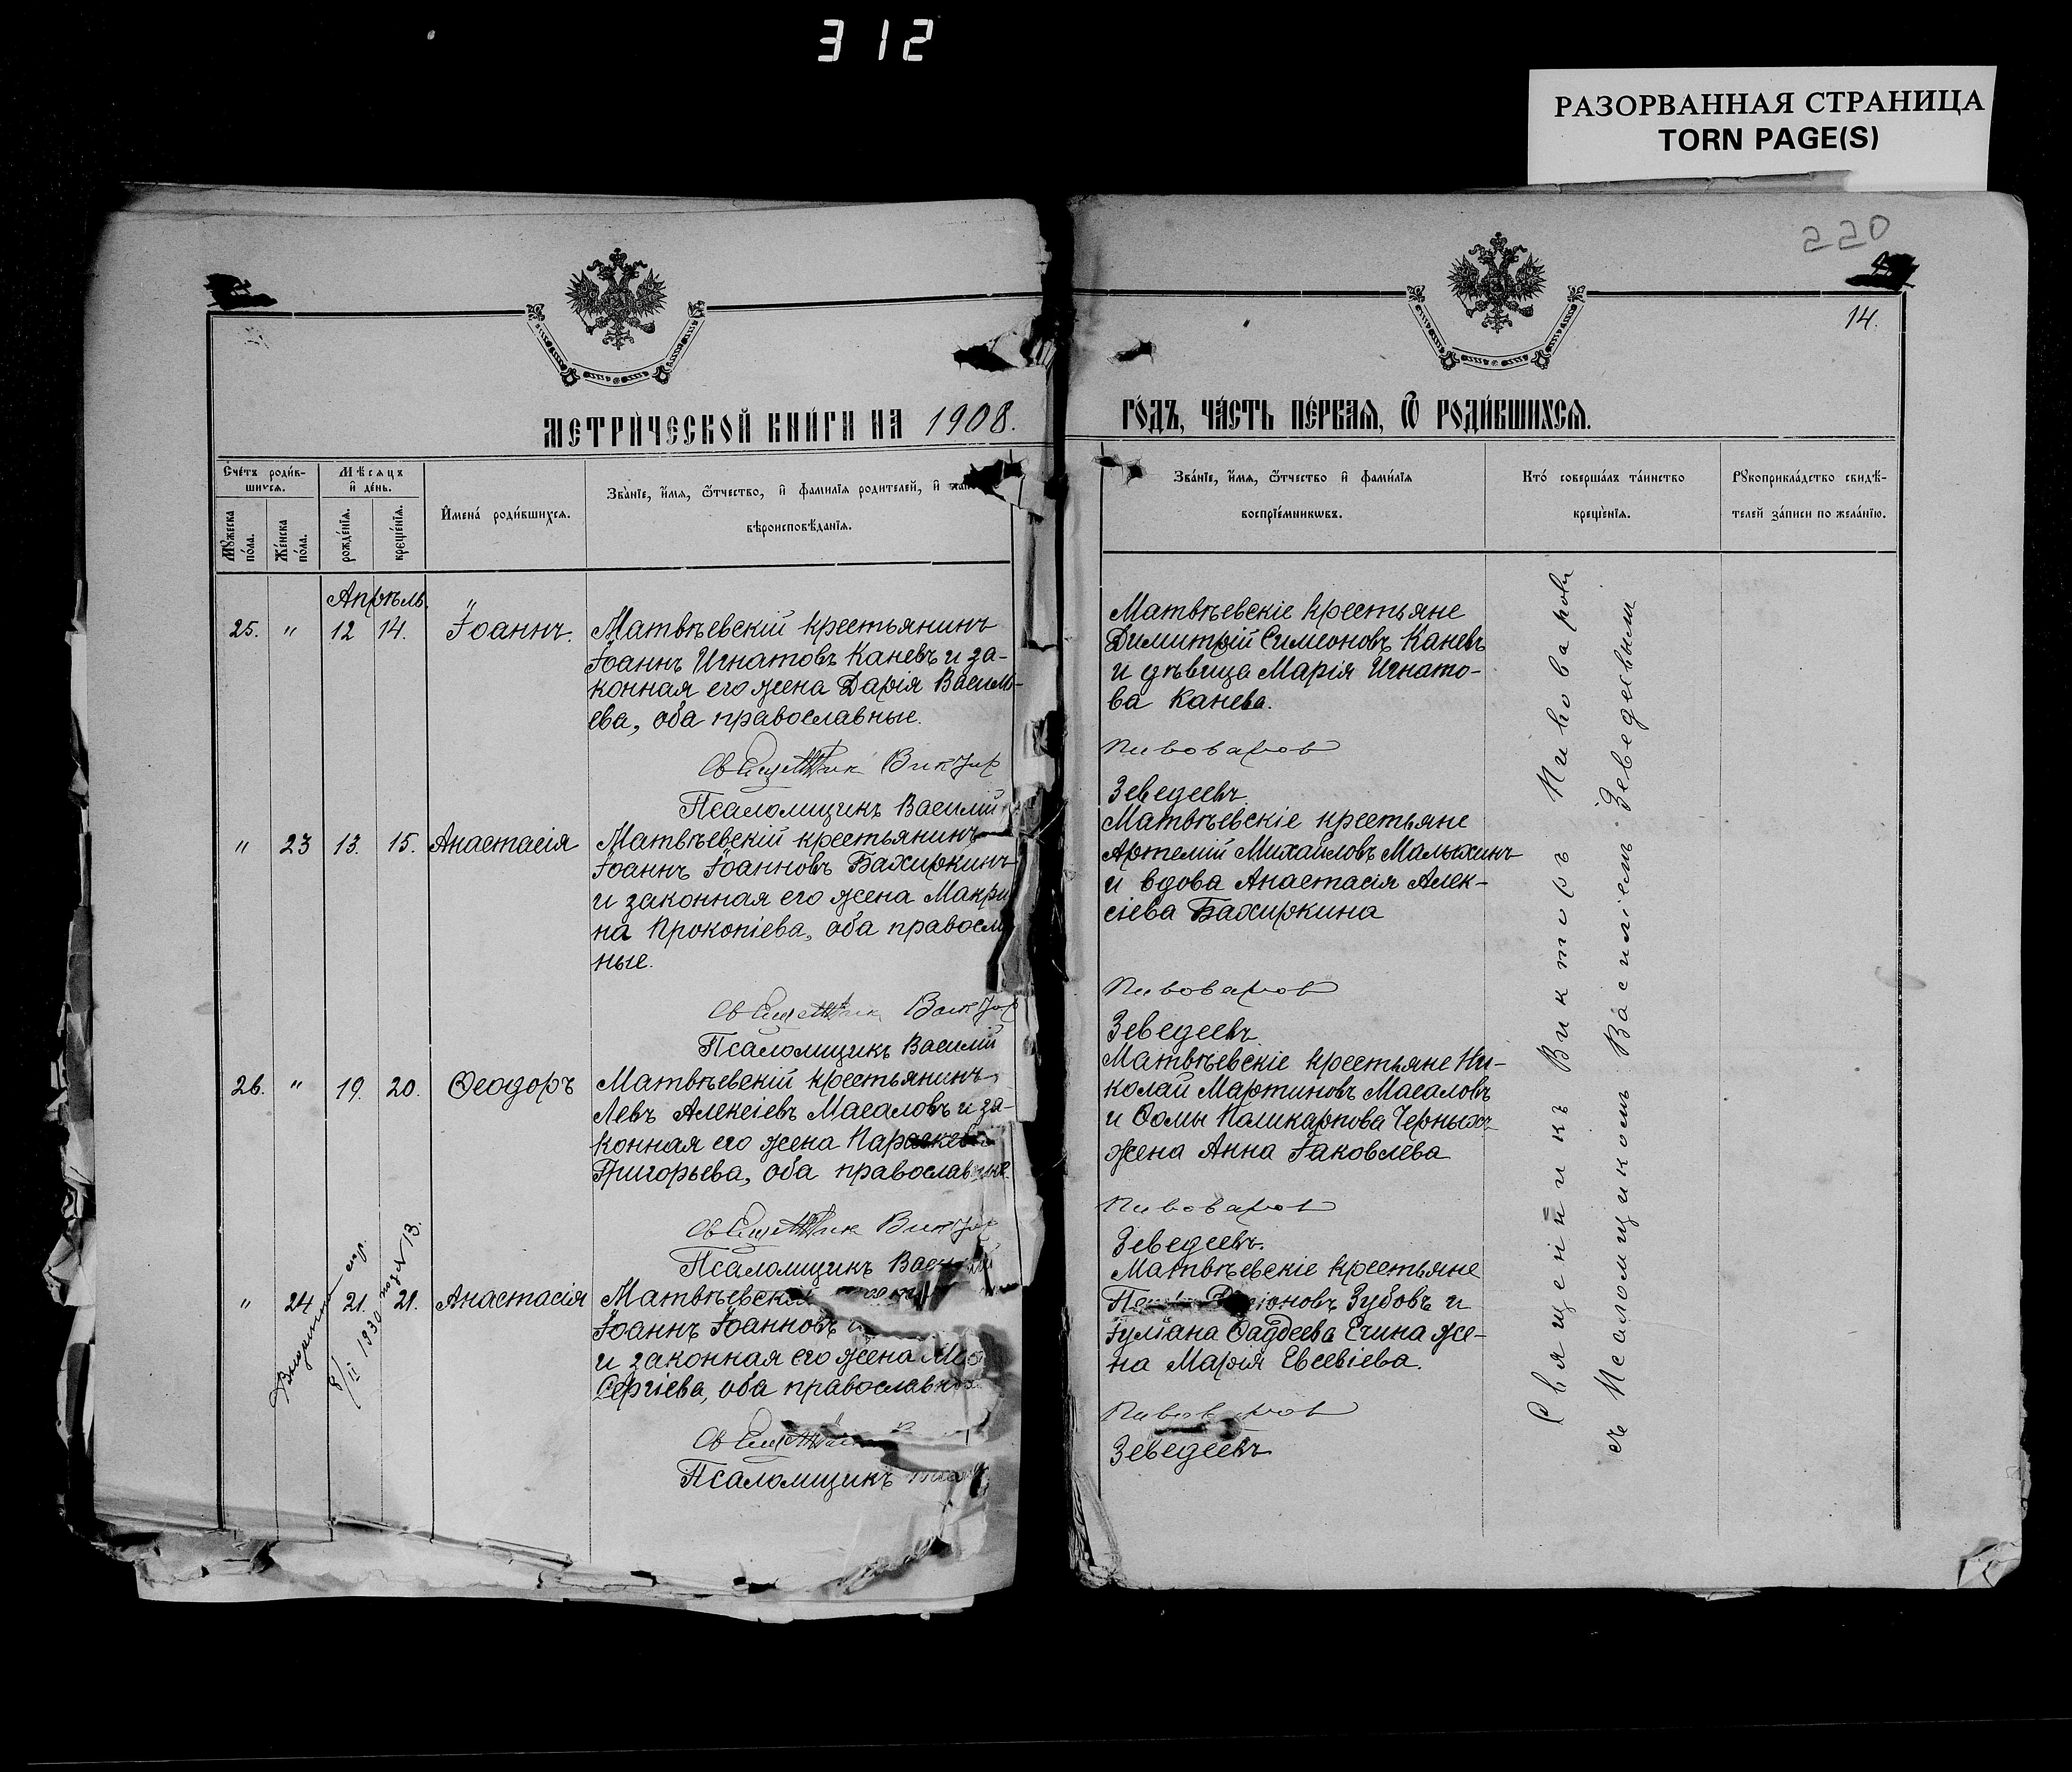 312
РАЗОРВАННАЯ СТРАНИЦА
TORN PAGE(S)
220
14.
МЕТРИ́ЧЕСКОЙ КНИ́ГИ НА 1908.
ГО́ДЪ, ЧА́СТЬ ПЕ́РВАЯ, Ѿ РОДИ́ВШИХСЯ.
Сче́тъ роди́в-
шихся.
Мѣсяцъ
и де́нь.
Мꙋ́жеска
по́ла.
Же́нска
по́ла.
рожде́нїя.
креще́нїя.
И҆мена̀ роди́вшихся.
Зва́нїе, и҆́мя, ѻ҆́тчество, и҆ фами́лїя родителей, и҆
вѣроисповѣ́данїя.
Зва́нїе, и҆́мя, ѻ҆́тчество и҆ фами́лїя
воспрїе́мникѡвъ.
Кто́ соверша́лъ та́инство
креще́нїя.
Рꙋкоприкла́дство свидѣ́-
телей за́писи по жела́нїю.
Апрѣль. "
25. " 12 14. Іоаннъ.
Матвѣевскій крестьянинъ
Іоаннъ Игнатовъ Каневъ и за-
конная его жена Дарія Василь-
ева, оба православные.
Священник Виктор
Псаломщикъ Василій
Матвѣевскіе крестьяне
Димитрій Симеоновъ Каневъ
и дѣвица Марія Игнато-
ва Канева.
Пивоваров
Зеведеевъ.
" 23 13. 15. Анастасія
Матвѣевскій крестьянинъ
Іоаннъ Іоанновъ Бахиркинъ
и законная его жена Макри
на Прокопіева, оба правосла
ные.
Священник Виктор
Псаломщикъ Василій
Матвѣевскіе крестьяне
Артемій Михайловъ Малыхинъ
и вдова Анастасія Алек-
сіева Бахиркина
Пивоваров
Зеведеевъ.
26. " 19. 20. Ѳеодоръ
Матвѣевскій крестьянинъ
Левъ Алексіевъ Масаловъ и за-
конная его жена Параскева
Григорьева, оба православные.
Священник Виктор
Псаломщикъ Василій
Матвѣевскіе крестьяне Ни-
колай Мартиновъ Масаловъ
и Ѳомы Поликарпова Черныхъ
жена Анна Іаковлева
Пивоваров
Зеведеевъ.
" 24 21. 21. Анастасія
8/II 1930 года N 13.
Матвѣевскій
Іоаннъ Іоанновъ
и законная его жена
Сергіева, оба православные
Священник
Псаломщикъ
Матвѣевскіе крестьяне
Зубовъ и
Іуліана Ѳаддеева Ечина же-
на Марія Евсевіева.
Пивоваров
Зеведеевъ
Священникъ Викторъ Пивоваровъ
съ Псаломщикомъ Василіемъ Зеведеевымъ